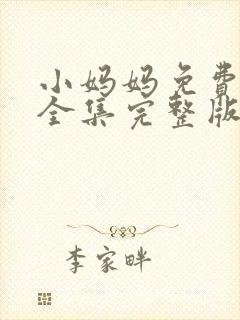 小妈妈免费
全集完整版
李家畔